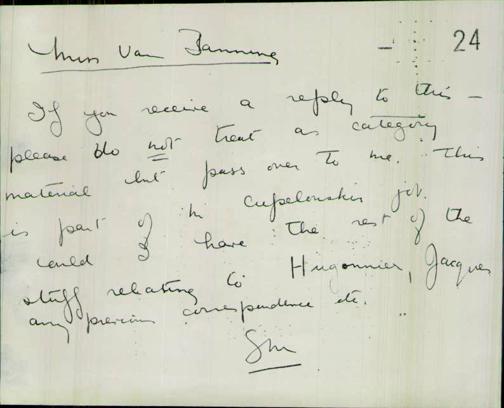 24
Miss Van
If you receive a reply to this –
please do not treat as category
material but pass over to me. This
is part of job.
Could I have the rest of the
stuff relating to Hugonnier, Jacques
any previous correspondence etc.